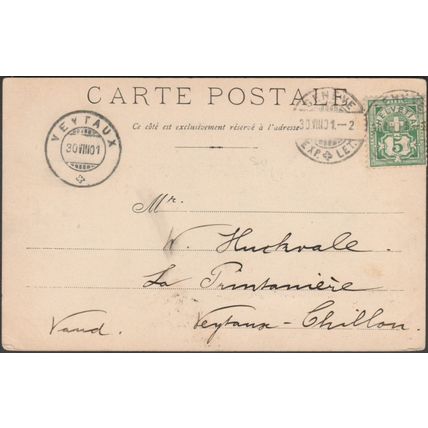 CARTE POSTALE
Ce côté est exclusivement réservé à l'adresse
GENÈVE
30.VIII.01.–2
EXP. LET.
HELVETIA
5
VEYTAUX
30 VIII 01
Mr.
W. Huckvale.
La Printanière
Vaud. Veytaux-Chillon.